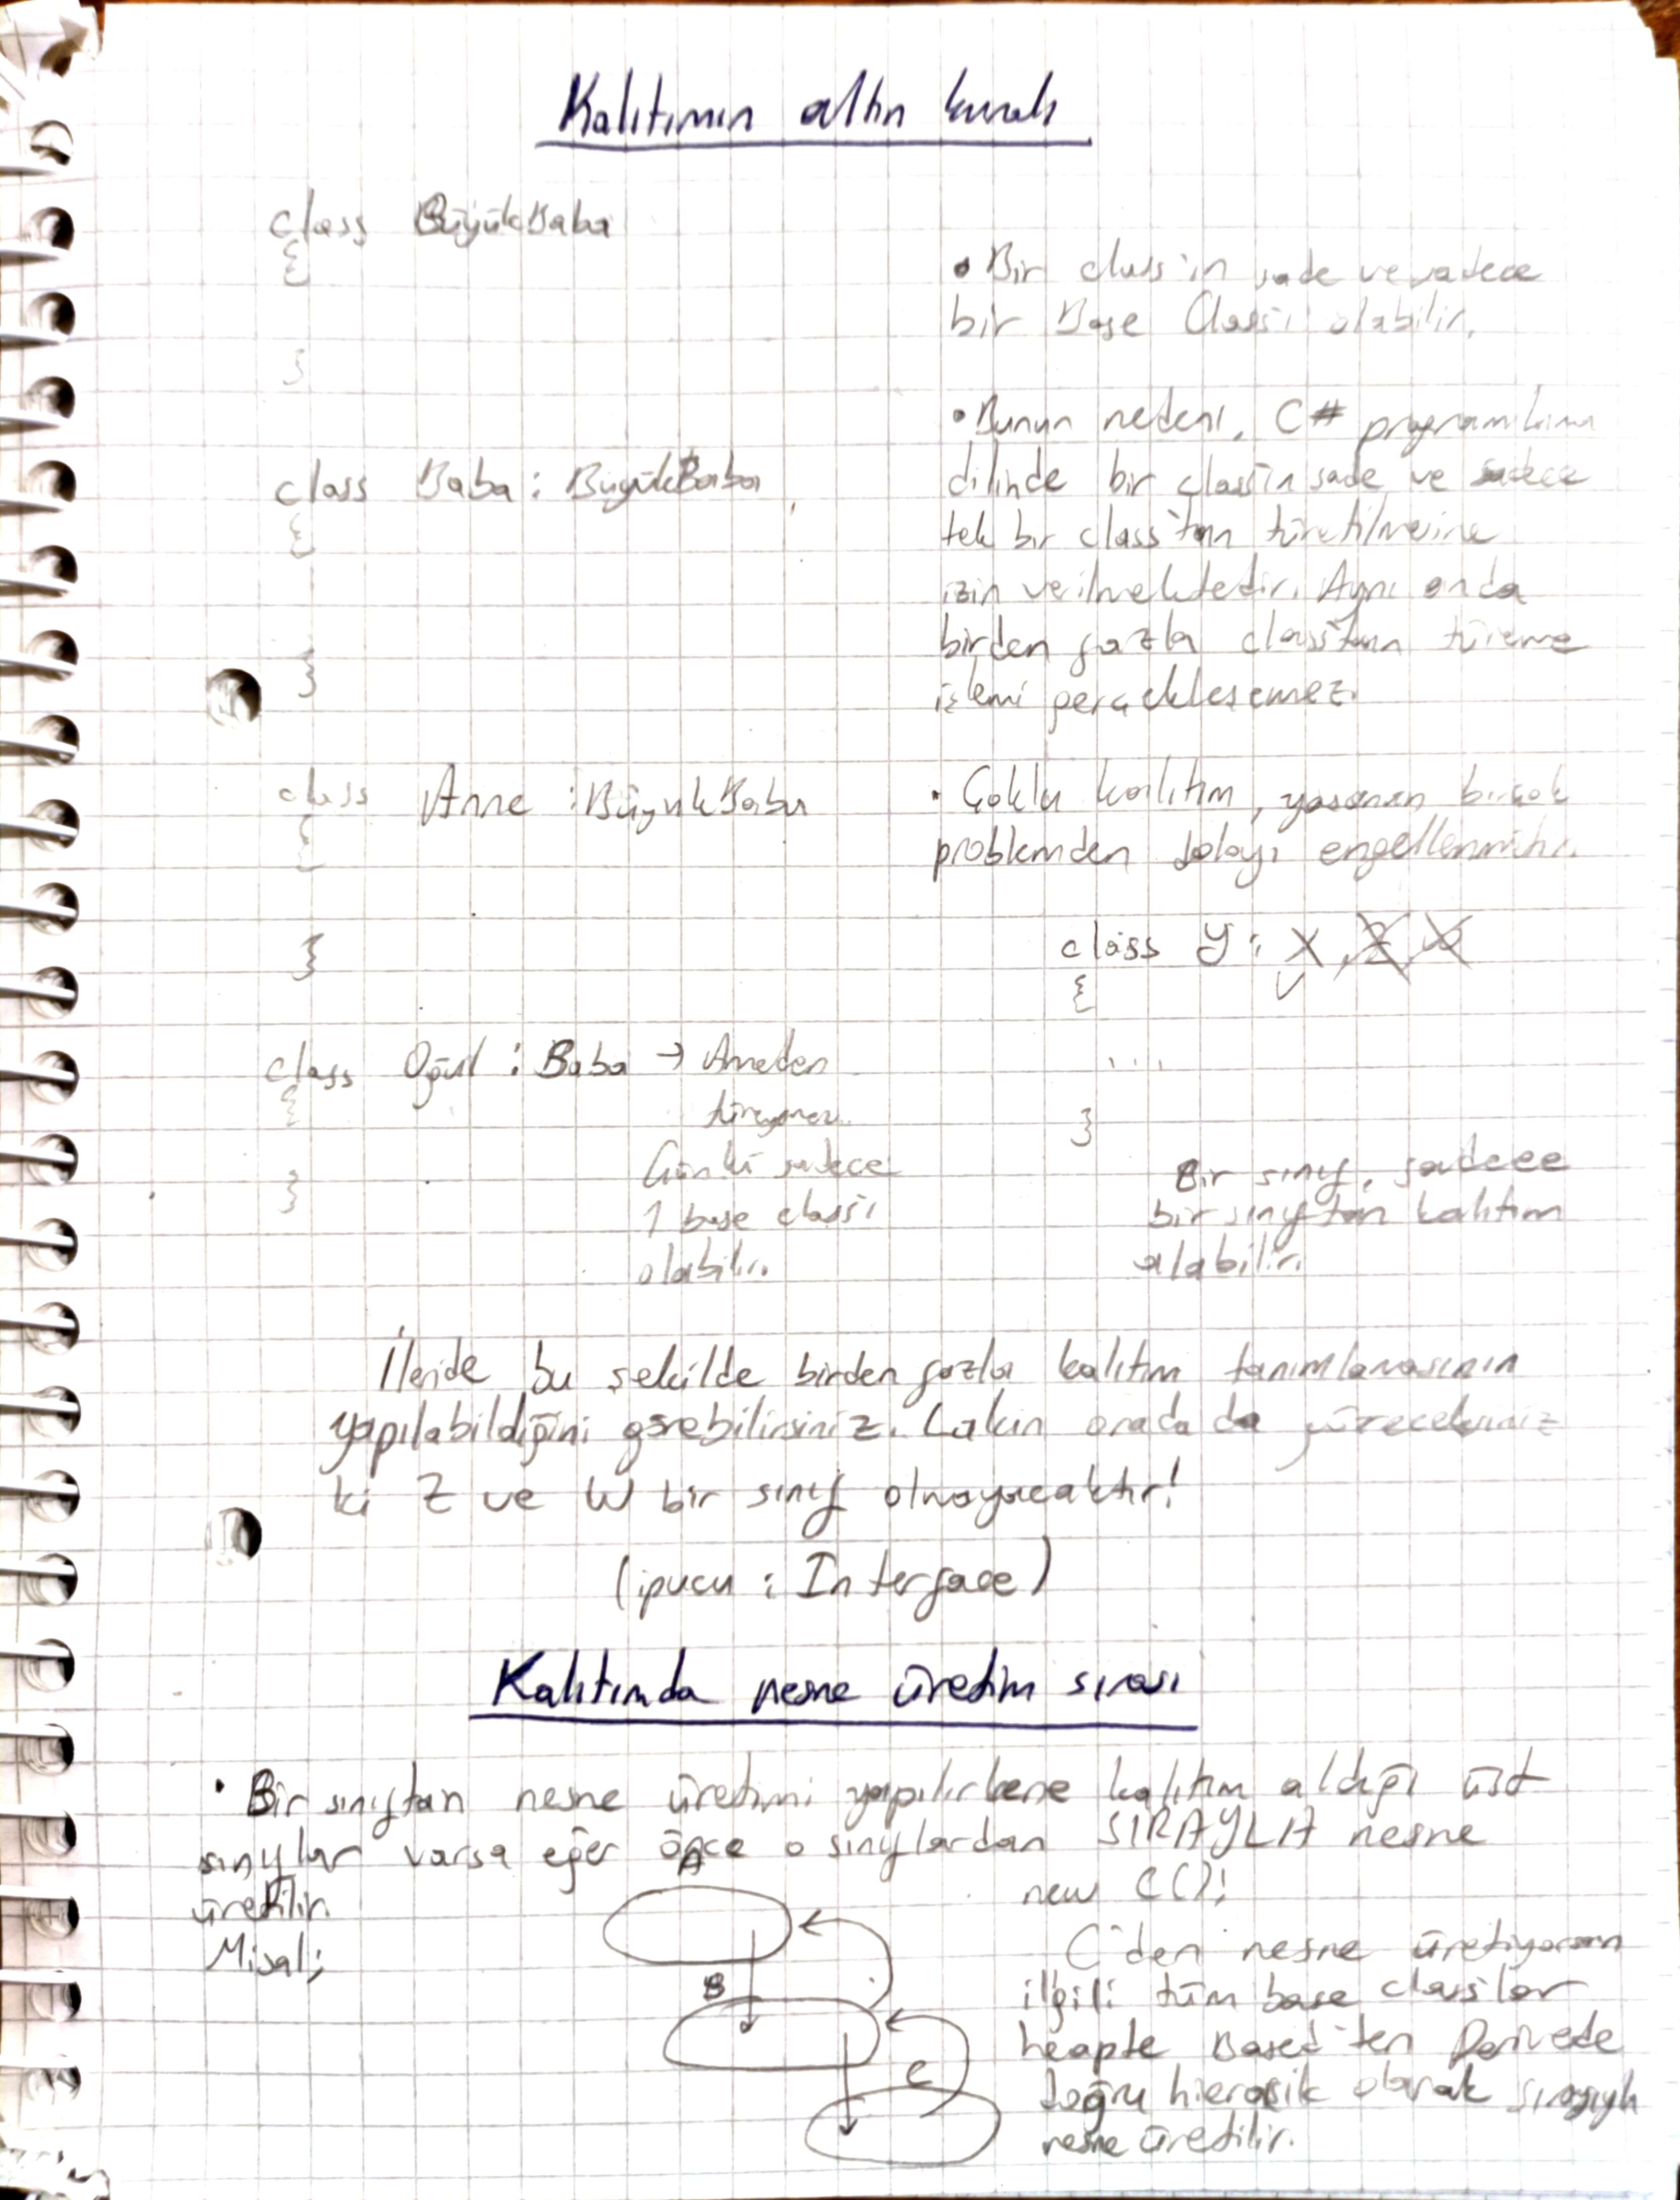 Kalıtımın altın kuralı
class BüyükBaba
{
}
class Baba : BüyükBaba
{
}
class Anne : BüyükBaba
{
}
class Oğul : Baba → Anneden
{
türeyemez.
Çünkü sadece
}
1 base class'ı
olabilir.
• Bir class'ın sade ve sadece
bir Base Class'ı olabilir.
• Bunun nedeni, C# programlama
dilinde bir class'ın sade ve sadece
tek bir class'tan türetilmesine
izin verilmektedir. Aynı anda
birden fazla class'tan türeme
işlemi gerçekleşemez.
• Çoklu kalıtım, yaşanan birçok
problemden dolayı engellenmiştir.
class Y : X, Z, W
{
...
}
Bir sınıf, sadece
bir sınıftan kalıtım
alabilir.
İleride bu şekilde birden fazla kalıtım tanımlamasının
yapılabildiğini görebilirsiniz. Lakin orada da göreceksiniz
ki Z ve W bir sınıf olmayacaktır!
(ipucu : Interface)
Kalıtımda nesne üretim sırası
• Bir sınıftan nesne üretimi yapılırkene kalıtım aldığı üst
sınıflar varsa eğer önce o sınıflardan SIRAYLA nesne
üretilir.
Misal;
A
B
C
new C();
C'den nesne üretiyorsan
ilgili tüm base class'lar
heapte Based'ten Derivede
doğru hierarşik olarak sırayıyla
nesne üretilir.